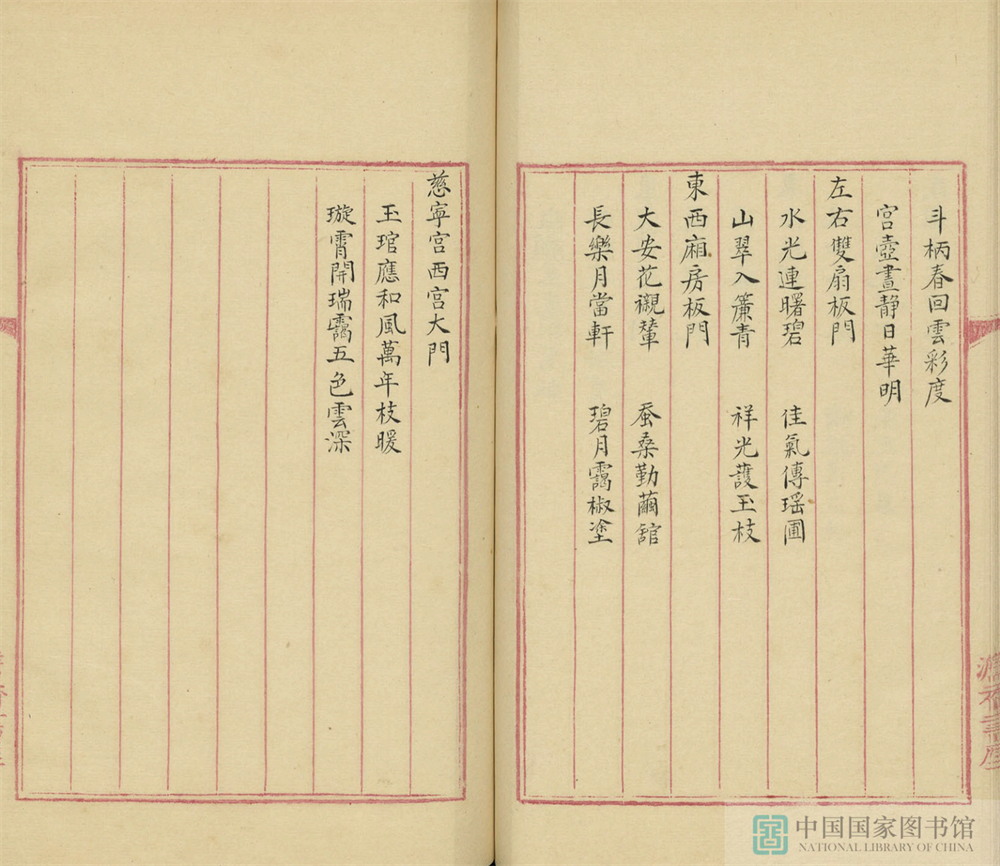 斗柄春回雲彩度
宮壼晝靜日華明
左右雙扇板門
水光連曙碧 佳氣傳瑶圃
山翠入簾青 祥光護玉枝
東西廂房板門
大安花襯輦 蚕桑勤繭館
長樂月當軒 碧月靄椒塗
慈寧宮西宮大門
玉琯應和風萬年枝暖
璇霄開瑞靄五色雲深
中国国家图书馆
NATIONAL LIBRARY OF CHINA